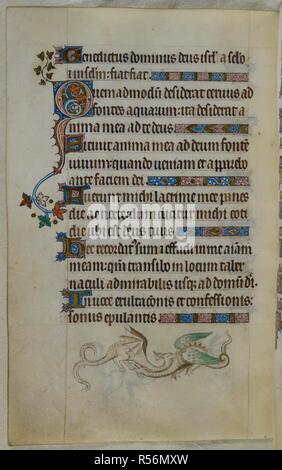 Benedictus dominus deus isrl' a sclo
Quemadmodū desiderat ceruus ad
fontes aquarum: ita desiderat a
nima mea ad te deus.
Sitiuit anima mea ad deum fontē
uiuum: quando ueniam et apparebo
ante faciem dei.
michi lacrime mee panes
die ac nocte: dum dicitur michi coti
die ubi est deus tuus
Hec recordat' sum et effudi in me aīam
meam: qm̄ transibo in locum taber
naculi admirabilis usq; ad domū di.
In uoce exultac̄onis et confessionis:
sonus epulantis.
alamy
Image ID: R56MXW
www.alamy.com